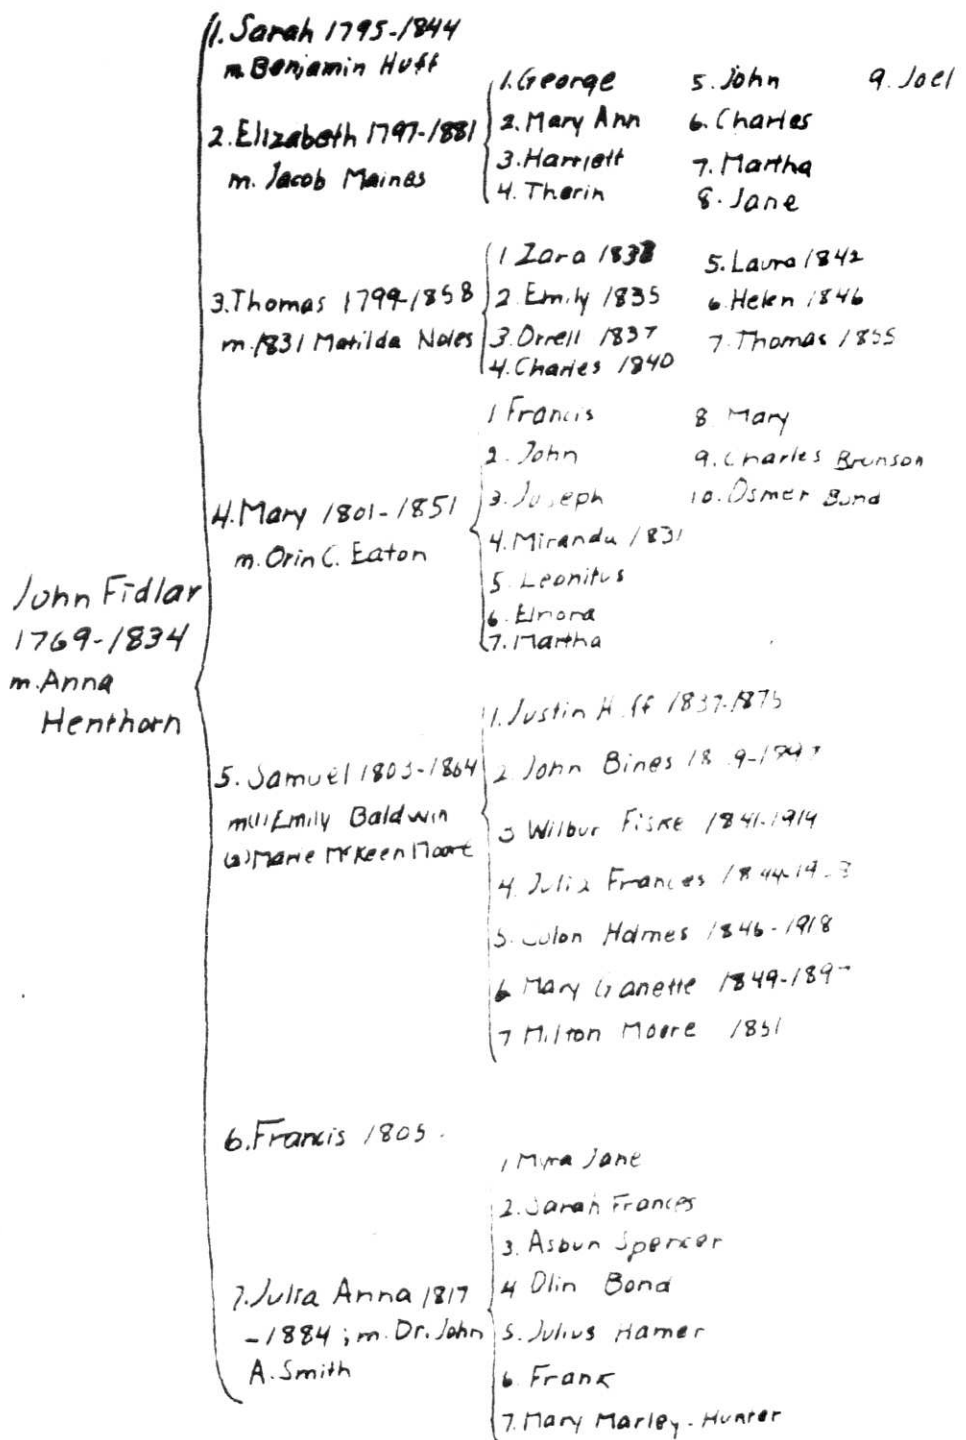 John Fidlar
1769-1834
m. Anna
Henthorn
1. Sarah 1795-1844
m. Benjamin Huff
2. Elizabeth 1797-1881
m. Jacob Maines
1. George
2. Mary Ann
3. Harriett
4. Therin
5. John
6. Charles
7. Martha
8. Jane
9. Joel
3. Thomas 1799-1858
m. 1831 Matilda Noles
1 Zara
2. Emily 1835
3. Orrell 1837
4. Charles 1840
5. Laura 1842
6. Helen 1846
7. Thomas 1855
4. Mary 1801-1851
m. Orin C. Eaton
1 Francis
2. John
3. Joseph
4. Miranda 1831
5. Leonitus
6. Elnora
7. Martha
8 Mary
9. Charles Brunson
10. Osmer Bond
5. Samuel 1803-1864
m(1) Emily Baldwin
(2) Marie McKeen Moore
1. Justin 1837-1875
2 John Bines
3 Wilbur Fiske 1841-1914
4. Julia Frances
5. Holmes 1846-1918
6 Mary Ganette
7 Milton Moore 1851
6. Francis 1805.
7. Julia Anna 1817
-1884; m. Dr. John
A. Smith
1 Myra Jane
2. Sarah Frances
3. Asbun Spencer
4 Olin Bond
5. Julius Hamer
6 Frank
7. Mary Marley-Hunter